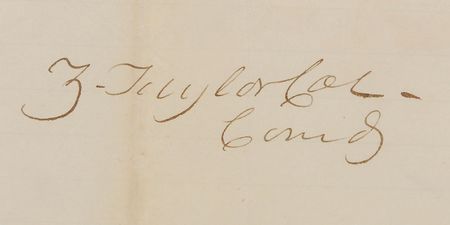 Z. Taylor Col.
Comdg